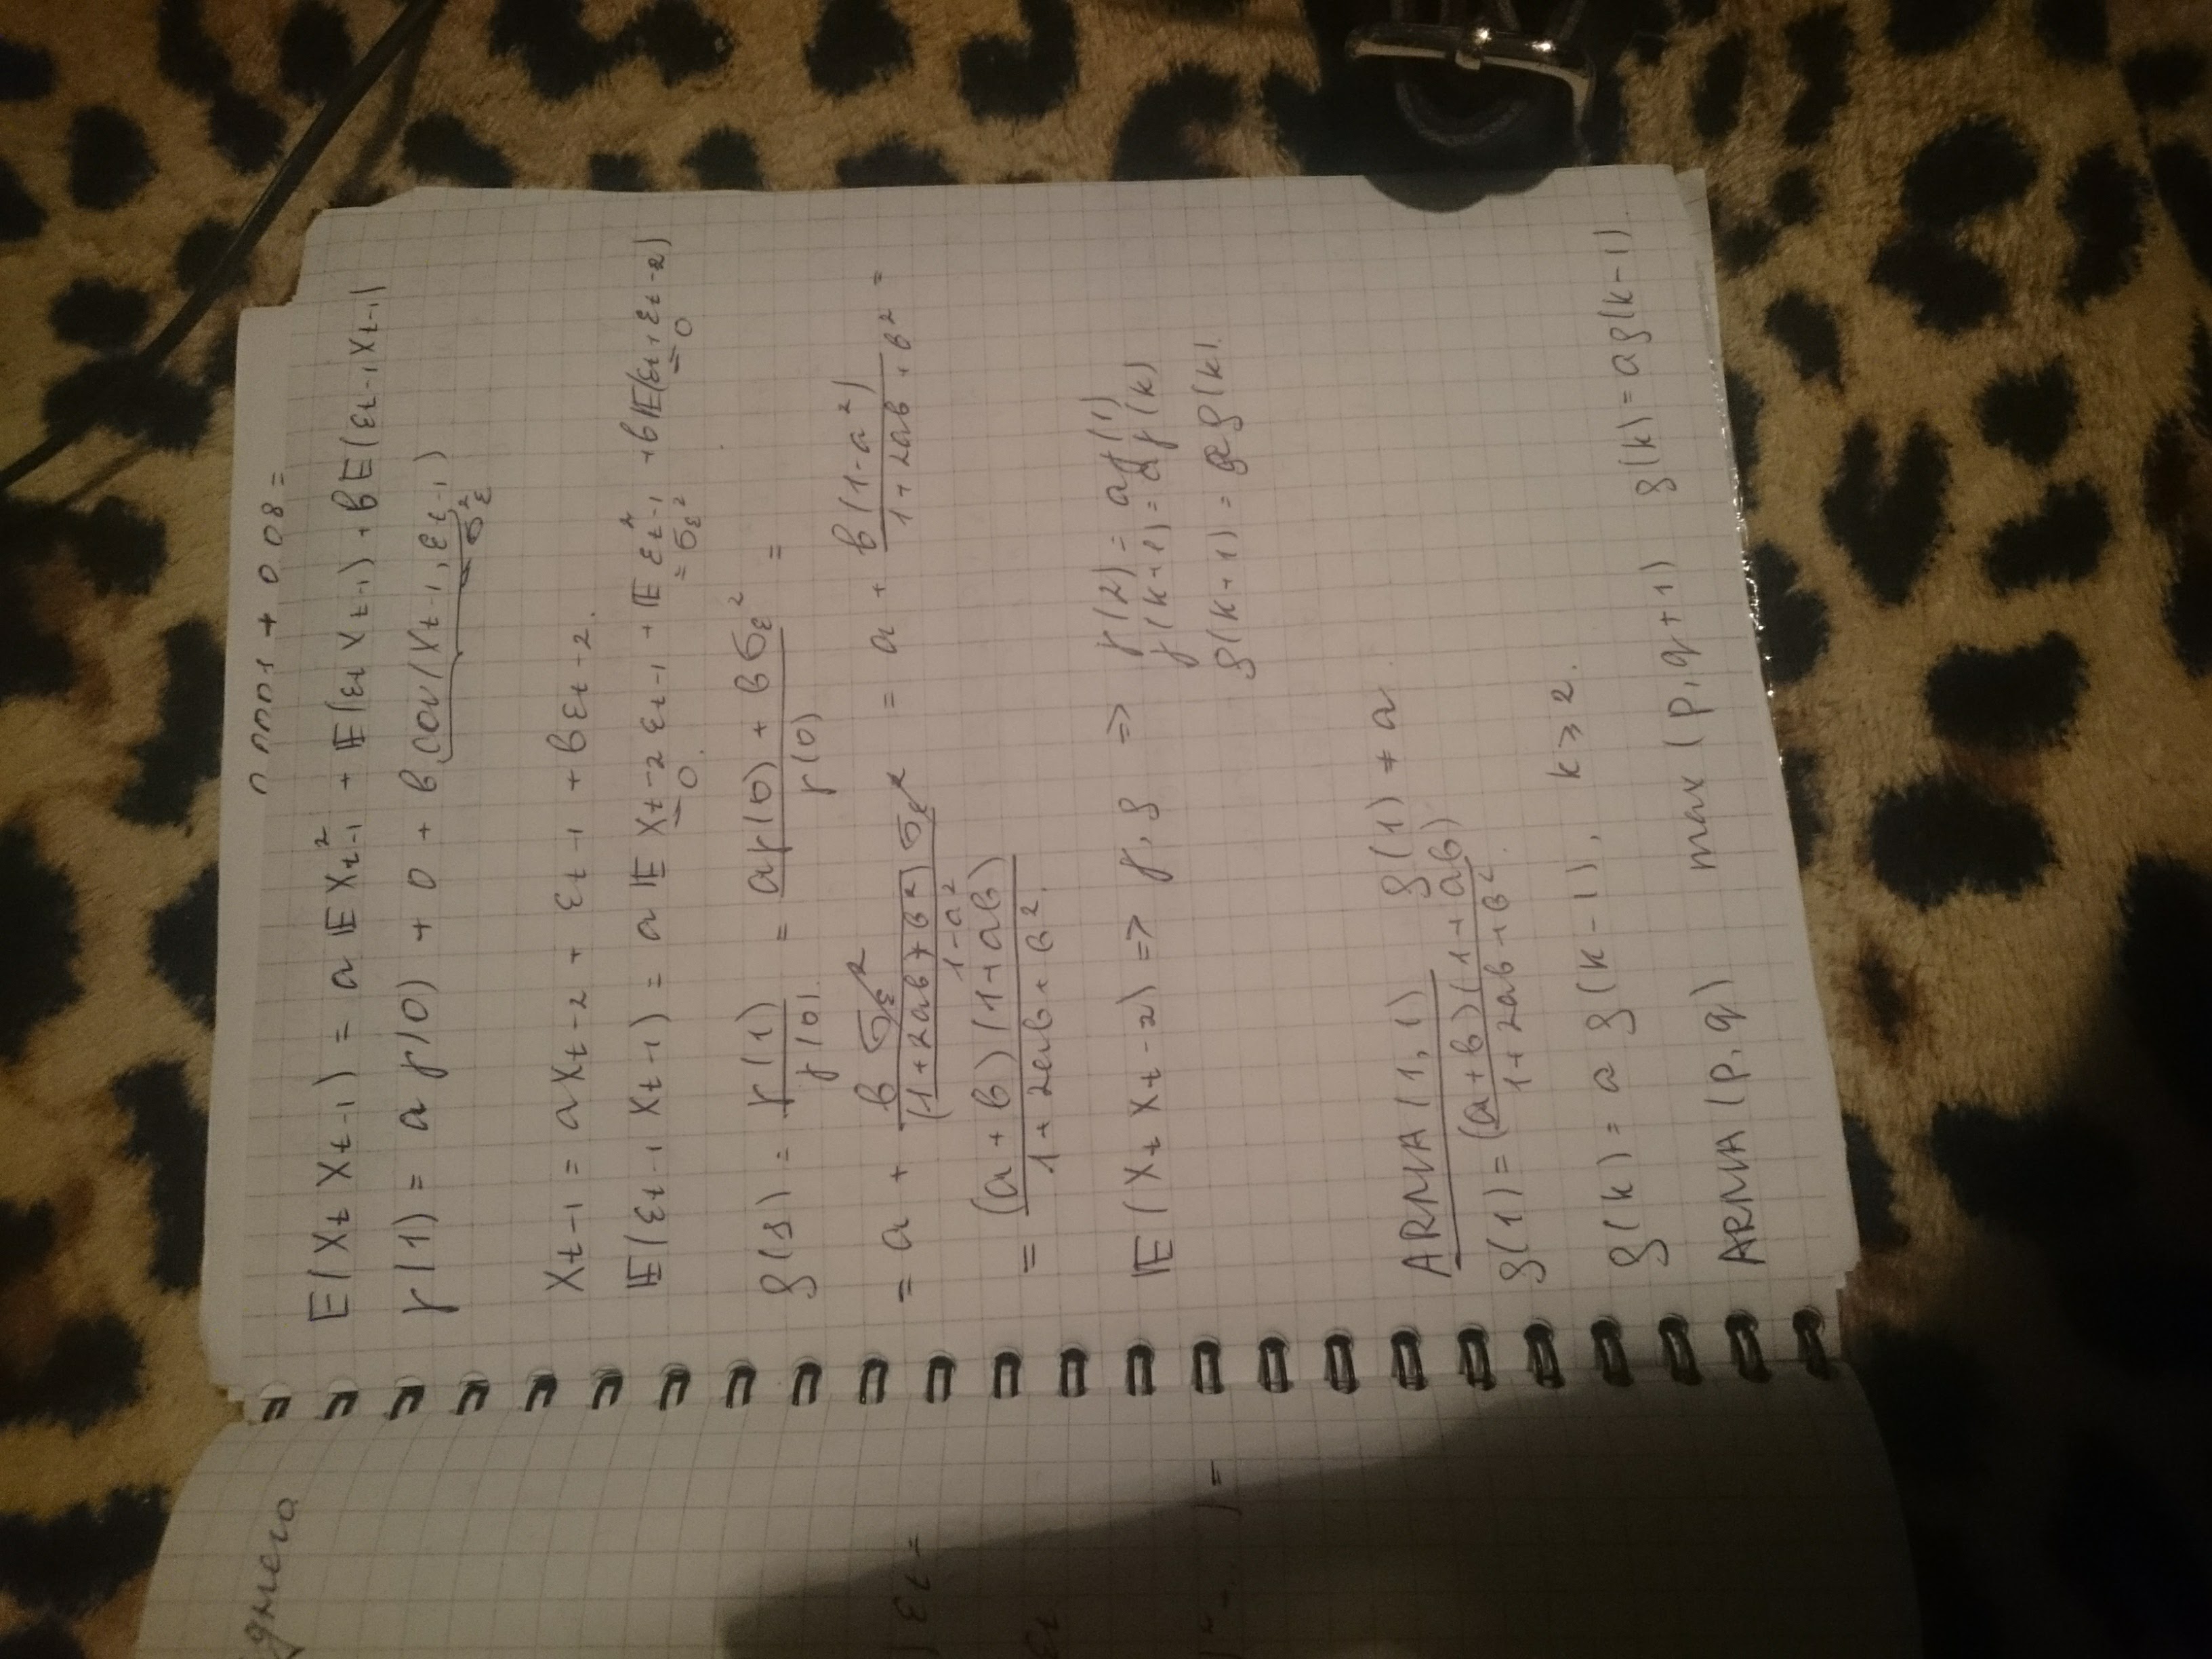 + 0.08 =
E(XₜXₜ₋₁) = a𝔼X²ₜ₋₁ + 𝔼(εₜXₜ₋₁) + b𝔼(εₜ₋₁Xₜ₋₁)
γ(1) = aγ(0) + 0 + b cov(Xₜ₋₁, εₜ₋₁)
σ²_ε
Xₜ₋₁ = aXₜ₋₂ + εₜ₋₁ + bεₜ₋₂.
𝔼(εₜ₋₁Xₜ₋₁) = a𝔼Xₜ₋₂εₜ₋₁ + 𝔼ε²ₜ₋₁ + b𝔼(εₜ₋₁εₜ₋₂)
= 0. = σ_ε² = 0
ρ(1) = γ(1)/γ(0) = (aγ(0) + bσ_ε²)/γ(0) =
= a + bσ_ε²/((1+2ab+b²)σ_ε²/(1-a²)) = a + b(1-a²)/(1+2ab+b²) =
= (a+b)(1+ab)/(1+2ab+b²).
𝔼(XₜXₜ₋₂) => γ, ρ => γ(2) = aγ(1)
γ(k+1) = aγ(k)
ρ(k+1) = aρ(k).
ARMA(1,1) ρ(1) ≠ a
ρ(1) = (a+b)(1+ab)/(1+2ab+b²).
ρ(k) = aρ(k-1), k ⩾ 2.
ARMA(p,q) max(p,q+1) ρ(k) = aρ(k-1)
εₜ =
εₜ
) =